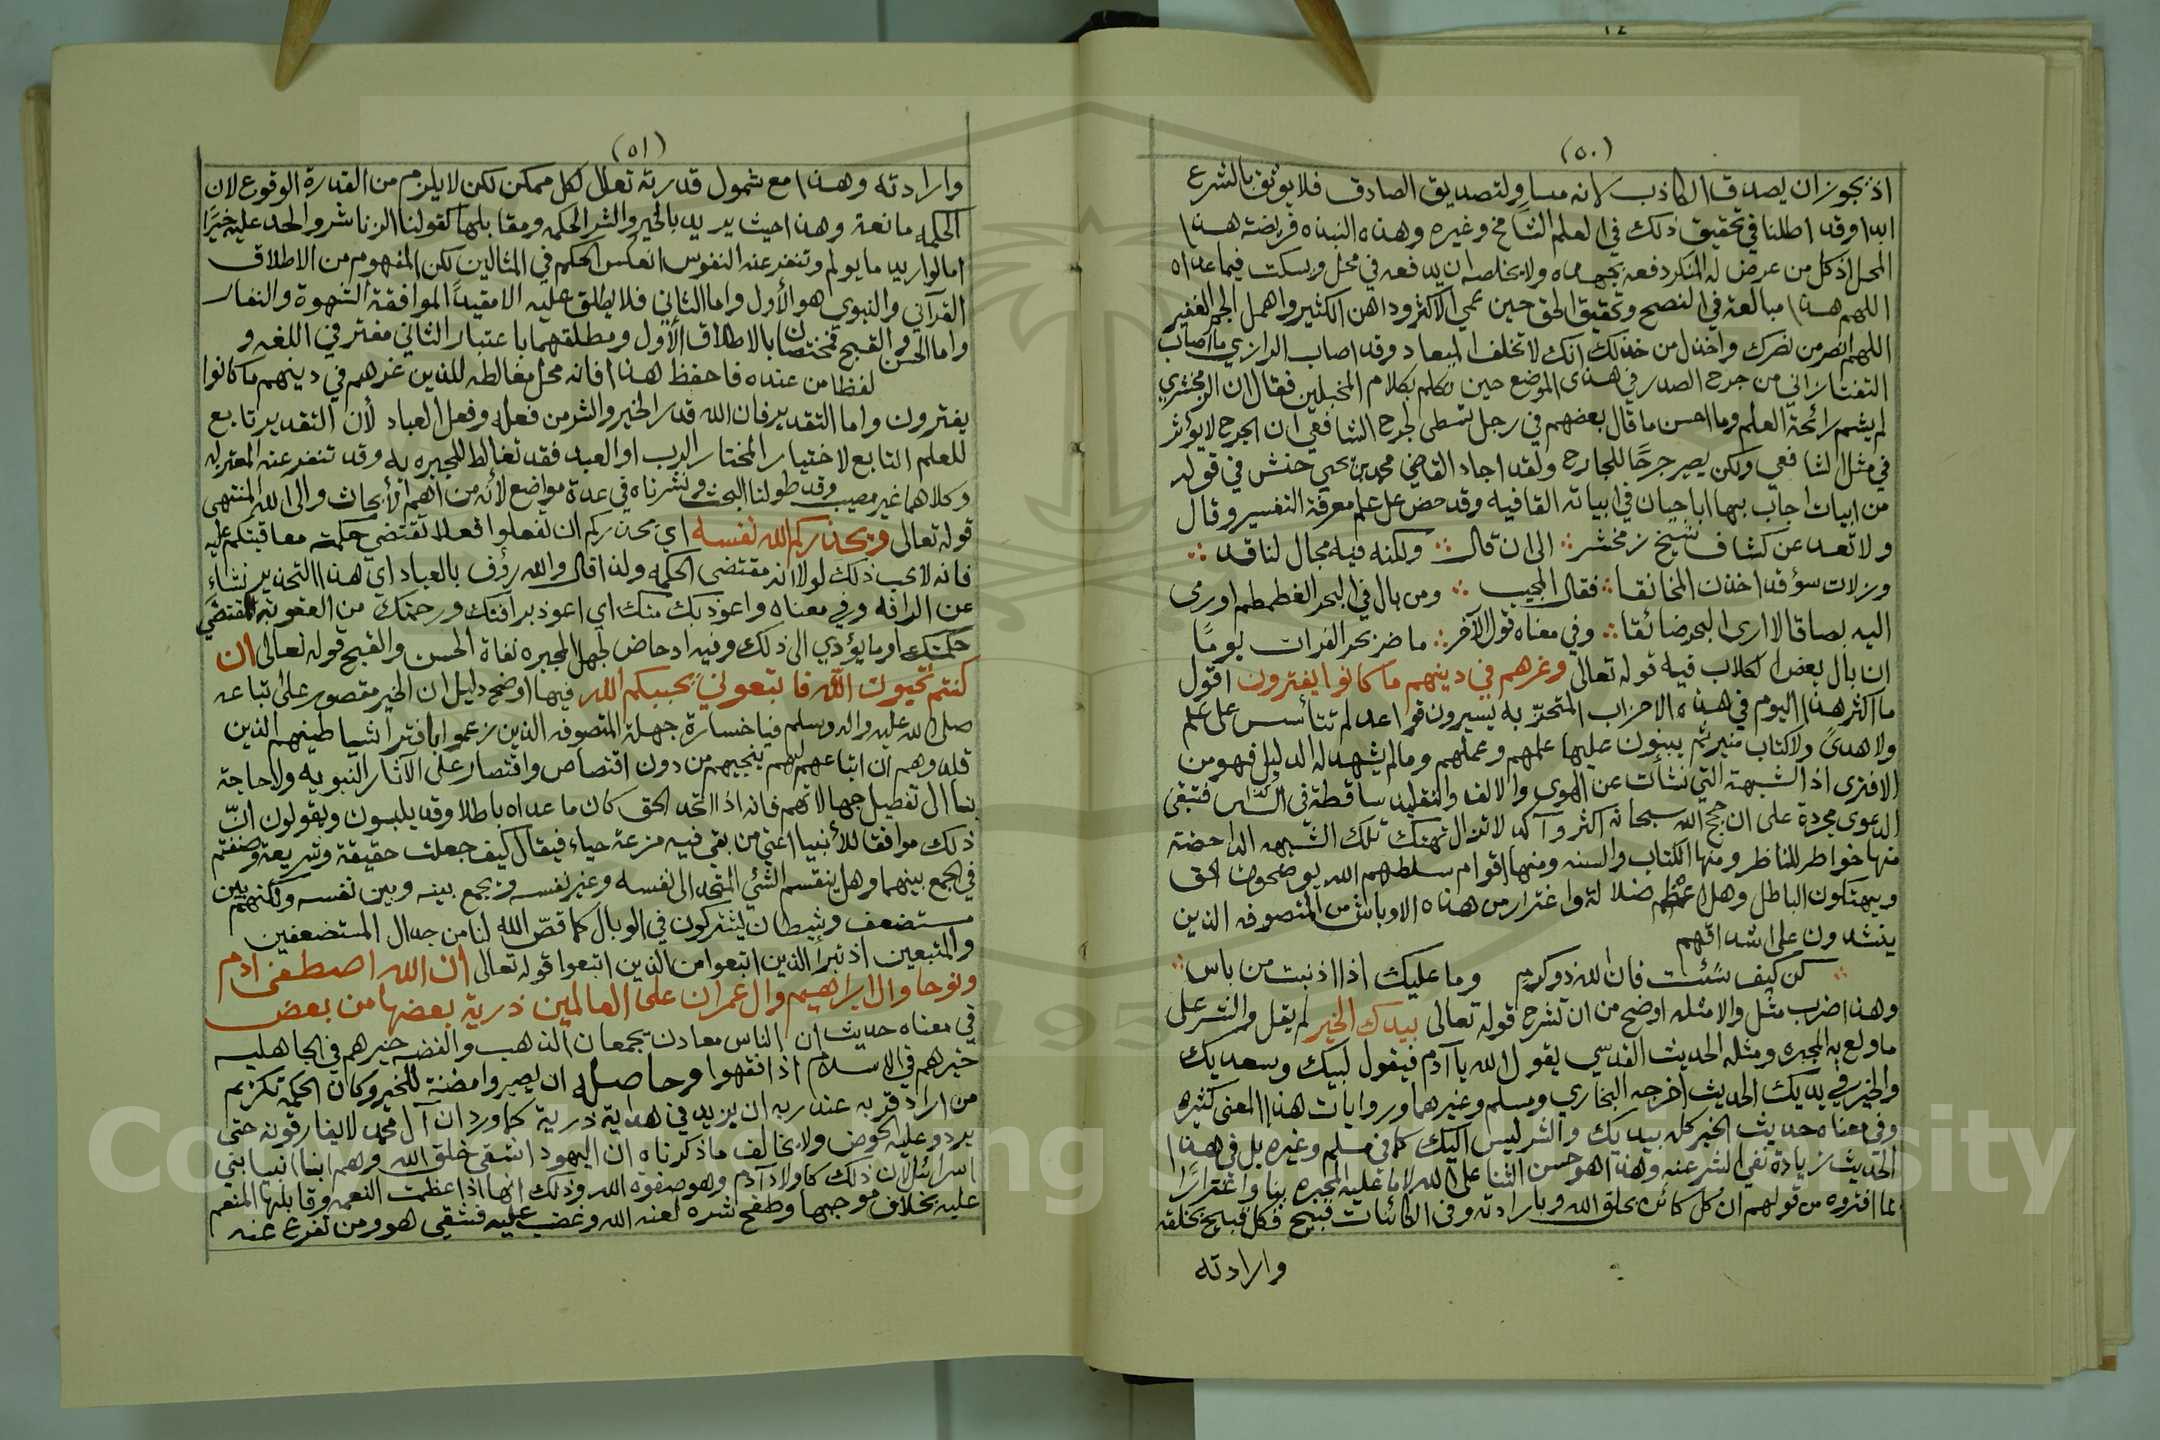 (٥٠)
اذ يجوز ان يصدق الكاذب لانه مساو لتصديق الصادق فلا يوثق بالشرع
ابدا وقد اطلنا في تحقيق ذلك في العلم الشامخ وغيره وهذه النبذه فريضة هذا
المحل اذ كل من عرض له المنكر دفعه بجهده ولا يخلصه ان يدفعه في محل ويسكت فيما عداه
اللهم هذا مبالغة في النصح وتحقيق الحق حين عمي الاكثر وداهن الكثير واهمل الجم الغفير
اللهم انصر من نصرك واخذل من خذلك انك لا تخلف الميعاد وقد اصاب الرازي ما اصاب
التفتازاني من جرح الصدر في هذا الموضع حين تكلم بكلام المخبلين فقال ان الزمخشري
لم يشم رائحة العلم وما احسن ما قال بعضهم في رجل تسطى لجرح الشافعي ان الجرح لا يؤثر
في مثل الشافعي ولكن يصير جرحا للجارح ولقد اجاد القاضي محمد بن يحيى حنش في قوله
من ابيات اجاب بها ابا حيان في ابياته القافيه وقد حض على علم معرفة التفسير وقال
ولا تعد عن كشاف شيخ زمخشر ؞ الى ان قال ؞ ولكنه فيه مجال لناقد ؞
وزلات سؤ قد اخذن المخانقا ؞ فقال المجيب ؞ ومن بال في البحر الغطمطم او رمى
اليه بصاقا لا ارى البحر ضائقا ؞ وفي معناه قول الآخر ؞ ما ضر بحر الفرات يوما
ان بال بعض الكلاب فيه قوله تعالى وغرهم في دينهم ما كانوا يفترون اقول
ما اكثر هذا اليوم في هذه الاحزاب المتحزبه يسيرون قواعد لم تتأسس على علم
ولا هدى ولا كتاب منير ثم يبنون عليها علمهم وعملهم وما لم يشهد له الدليل فهو من
الافترى اذ الشبهة التي نشأت عن الهوى والالف والتقليد ساقطة في الناس فتبقى
الدعوى مجردة على ان حجج الله سبحانه اكثر وآكد لا تزال تهتك تلك الشبهه الداحضة
منها خواطر للناظر ومنها الكتاب والسنه ومنها اقوام سلطهم الله يوضحون الحق
ويهتكون الباطل وهل اعظم ضلالة واغترار من هذه الاوباش من المتصوفه الذين
ينشدون على اشداقهم
؞ كن كيف شئت فان الله ذو كرم   وما عليك اذا اذنبت من باس ؞
وهذا ضرب مثل والامثله اوضح من ان تشرح قوله تعالى بيدك الخير لم يقل والشر على
ما ولع به المجبره ومثله الحديث القدسي يقول الله يا آدم فيقول لبيك وسعديك
والخير في يديك الحديث اخرجه البخاري ومسلم وغيرهما وروايات هذا المعنى كثيره
وفي معناه حديث الخير كله بيديك والشر ليس اليك كما في مسلم وغيره بل في هذا
الحديث زيادة نفي الشر عنه وهذا هو حسن الثنا على الله لا ما عليه المجبره بنا واغترارا
لما افتروه من قولهم ان كل كائن بخلق الله وبارادته وفي الكائنات قبيح فكل قبيح بخلقه
وارادته
(٥١)
وارادته وهذا مع شمول قدرته تعالى لكل ممكن لكن لا يلزم من القدرة الوقوع لان
الحكمه مانعة وهذا حيث يريد بالخير والشر الحكمه ومقابلها كقولنا الزنا شر والحد عليه خيرا
اما لو اريد ما يولم وتنفر عنه النفوس انعكس الحكم في المثالين لكن المفهوم من الاطلاق
القرآني والنبوي هو الأول واما الثاني فلا يطلق عليه الا مقيدا لموافقة الشهوة والنفار
واما الحسن والقبح فمختصان بالاطلاق الأول ومطلقهما باعتبار الثاني مفتر في اللغه و
لفظا من عنده فاحفظ هذا فانه محل مغالطه للذين غرهم في دينهم ما كانوا
يفترون واما التقدير فان الله قدر الخير والشر من فعله وفعل العباد لأن التقدير تابع
للعلم التابع لاختيار المختار الرب او العبد فقد تغالط المجبره به وقد تنفر عنه المعتزله
وكلاهما غير مصيب وقد طولنا البحث ونشرناه في عدة مواضع لأنه من اهم الأبحاث والى الله المنتهى
قوله تعالى ويحذركم الله نفسه اي يحذركم ان تفعلوا فعلا تقتضي حكمته معاقبتكم عليه
فانه لا يجب ذلك لولا انه مقتضى الحكمه ولذا قال والله رؤف بالعباد اي هذا التحذير نشاء
عن الرافه وفي معناه واعوذ بك منك اي اعوذ برافتك ورحمتك من العقوبه المقتضي
حكمتك او ما يؤدي الى ذلك وفيه ادحاض لجهل المجبره نفاة الحسن والقبح قوله تعالى ان
كنتم تحبون الله فاتبعوني يحببكم الله فيها اوضح دليل ان الخير مقصور على اتباعه
صلى الله عليه واله وسلم فيا خسارة جهلة المتصوفه الذين زعموا بافترا شياطينهم الذين
قلدوهم ان اتباعهم لهم ينجيهم من دون اقتصاص واقتصار على الآثار النبويه ولا حاجة
بنا الى تفصيل جهالاتهم فانه اذا اتحد الحق كان ما عداه باطلا وقد يلبسون ويقولون انّ
ذلك موافقا للأنبيا اعني من بقي فيه مزعة حياء فيقال كيف جعلت حقيقة وشريعة وصنفتم
في الجمع بينهما وهل ينقسم الشي المتحد الى نفسه وغير نفسه ويجمع بينه وبين نفسه ولكنهم بين
مستضعف وشيطان يشتركون في الوبال كما قصّ الله لنا من جدال المستضعفين
والمتبعين اذ تبرا الذين اتبعوا من الذين اتبعوا قوله تعالى ان الله اصطفى ادم
ونوحا وال ابراهيم وال عمران على العالمين ذرية بعضها من بعض
في معناه حديث ان الناس معادن تجمعان الذهب والفضه خيرهم في الجاهليه
خيرهم في الاسلام اذا فقهوا وحاصله ان يصيروا مضنة للخير وكان الحكمه تكريم
من اراد قربه عند ربه ان يزيد في هداية ذرية كما ورد ان آل محمد لا يفارقونه حتى
يردو عليه الحوض ولا يخالف ما ذكرناه ان اليهود اشقى خلق الله وهم ابنا انبيا بني
اسرائل لان ذلك كاولاد آدم وهو صفوة الله وذلك انها اذا عظمت النعمه وقابلها المنعم
عليه بخلاف موجبها وطفح شره لعنه الله وغضب عليه فشقي هو ومن تفرع عنه